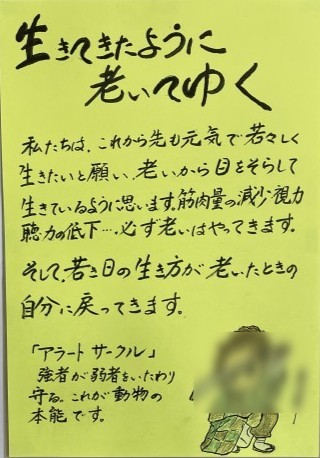 生きてきたように
老いてゆく
私たちは、これから先も元気で若々しく
生きたいと願い、老いから目をそらして
生きているように思います。筋肉量の減少、視力
聴力の低下…、必ず老いはやってきます。
そして、若き日の生き方が老いたときの
自分に戻ってきます。
「アラート サークル」
強者が弱者をいたわり
守る。これが動物の
本能です。